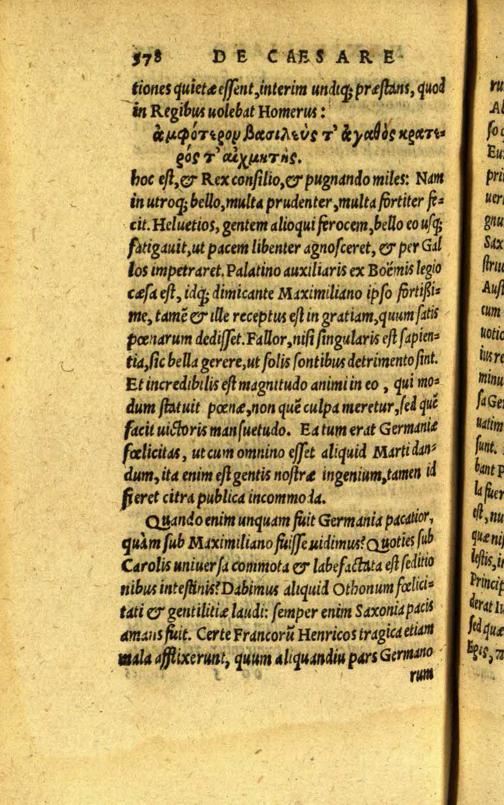 578 DE CAESARE
tiones quietæ essent, interim undiq; præstans, quod
in Regibus uolebat Homerus:
ἀμφότερον βασιλεὺς τ' ἀγαθὸς κρατε-
ρός τ' αἰχμητής.
hoc est, & Rex consilio, & pugnando miles: Nam
in utroq; bello, multa prudenter, multa fortiter fe-
cit. Heluetios, gentem alioqui ferocem, bello eo usq;
fatigauit, ut pacem libenter agnosceret, & per Gal
los impetraret. Palatino auxiliaris ex Boëmis legio
cæsa est, idq; dimicante Maximiliano ipso fortißi-
me, tamẽ & ille receptus est in gratiam, quum satis
pœnarum dedisset. Fallor, nisi singularis est sapien-
tia, sic bella gerere, ut solis sontibus detrimento sint.
Et incredibilis est magnitudo animi in eo, qui mo-
dum statuit pœnæ, non quẽ culpa meretur, sed quẽ
facit uictoris mansuetudo. Ea tum erat Germaniæ
fœlicitas, ut cum omnino esset aliquid Marti dan-
dum, ita enim est gentis nostræ ingenium, tamen id
fieret citra publica incommoda.
Quando enim unquam fuit Germania pacatior,
quàm sub Maximiliano fuisse uidimus? Quoties sub
Carolis uniuersa commota & labefactata est seditio
nibus intestinis? Dabimus aliquid Othonum fœlici-
tati & gentilitiæ laudi: semper enim Saxonia pacis
amans fuit. Certe Francorũ Henricos tragica etiam
mala afflixerunt, quum aliquandiu pars Germano
rum